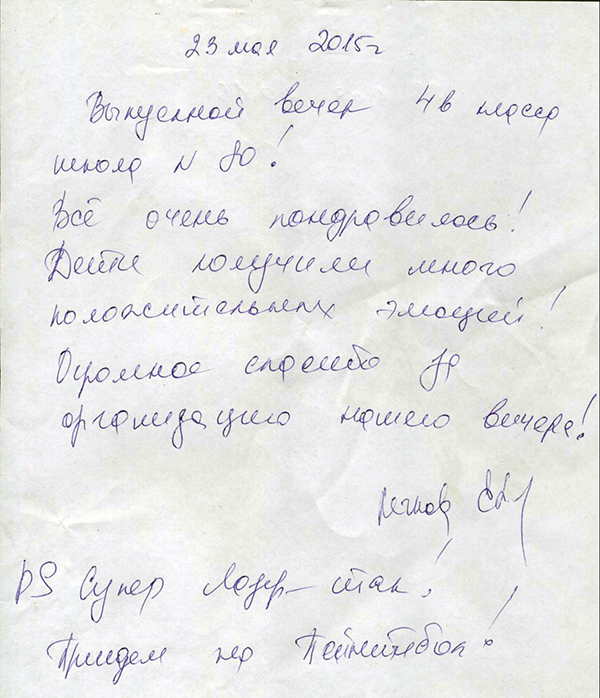 23 мая 2015г
Выпускной вечер 4в класса
школа N 80!
Всё очень пондравилось!
Дети получили много
положительных эмоций!
Огромное спасибо за
организацию нашего вечера!
PS Супер Лазер-таг!
Придем на Пейнтбол!